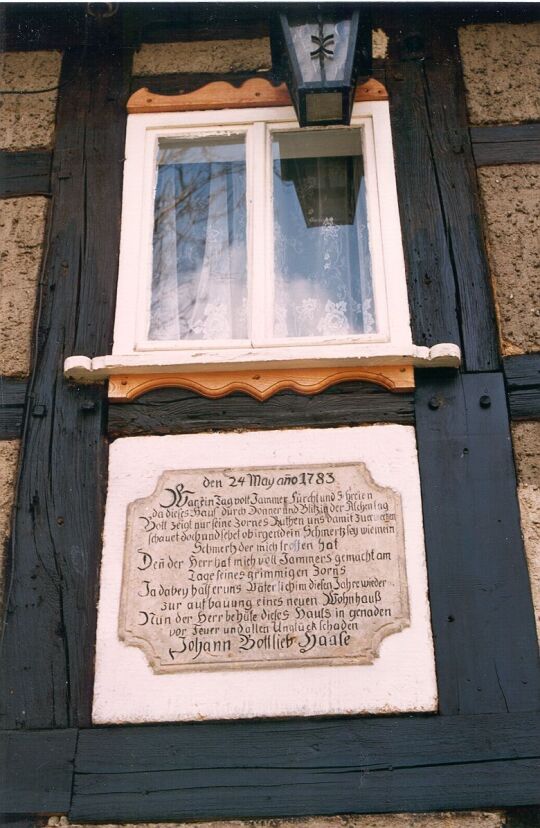 den 24 May año 1783
War ein Tag voll Jammer Furcht und Schrein
da dieses Hauß durch Donner und Blitz in der Aschen lag
Gott zeigt nur seine zornes Ruthen uns damit zu
schauet doch und sehet ob irgend ein Schmertz sey wie mein
Schmertz der mich troffen hat
Deñ der Herr hat mich voll Jammers gemacht am
Tage seines grimmigen Zorns
Ja dabey halff er uns Väterlich im diesen Jahre wieder
zur aufbauung eines neuen Wohnhauß
Nun der Herr behüte dieses Hauß in genaden
vor Feuer und allen Unglück schaden
Johann Gottlieb Haase